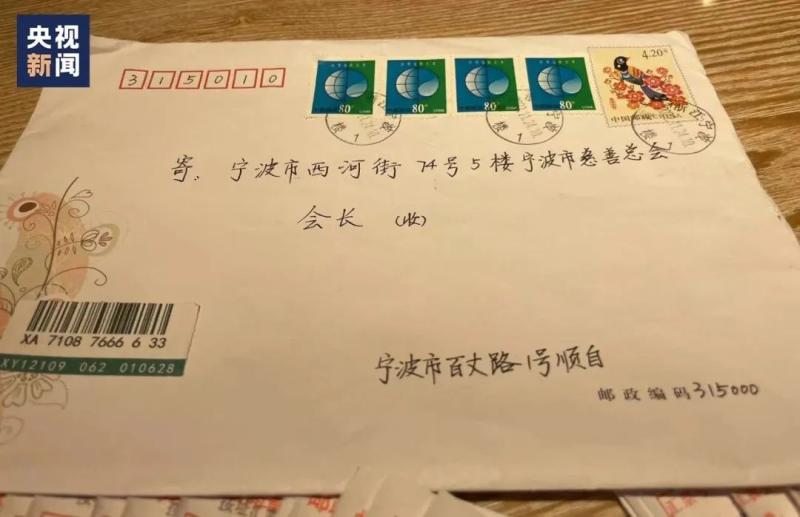 央视
新闻
315010
80
80
80
80
4.20
中国邮政
寄：宁波市西河街74号5楼宁波市慈善总会
会长（收）
XA 7108 7666 6 33
XY12109 062 010628
宁波市百丈路1号顺自
邮政编码315000